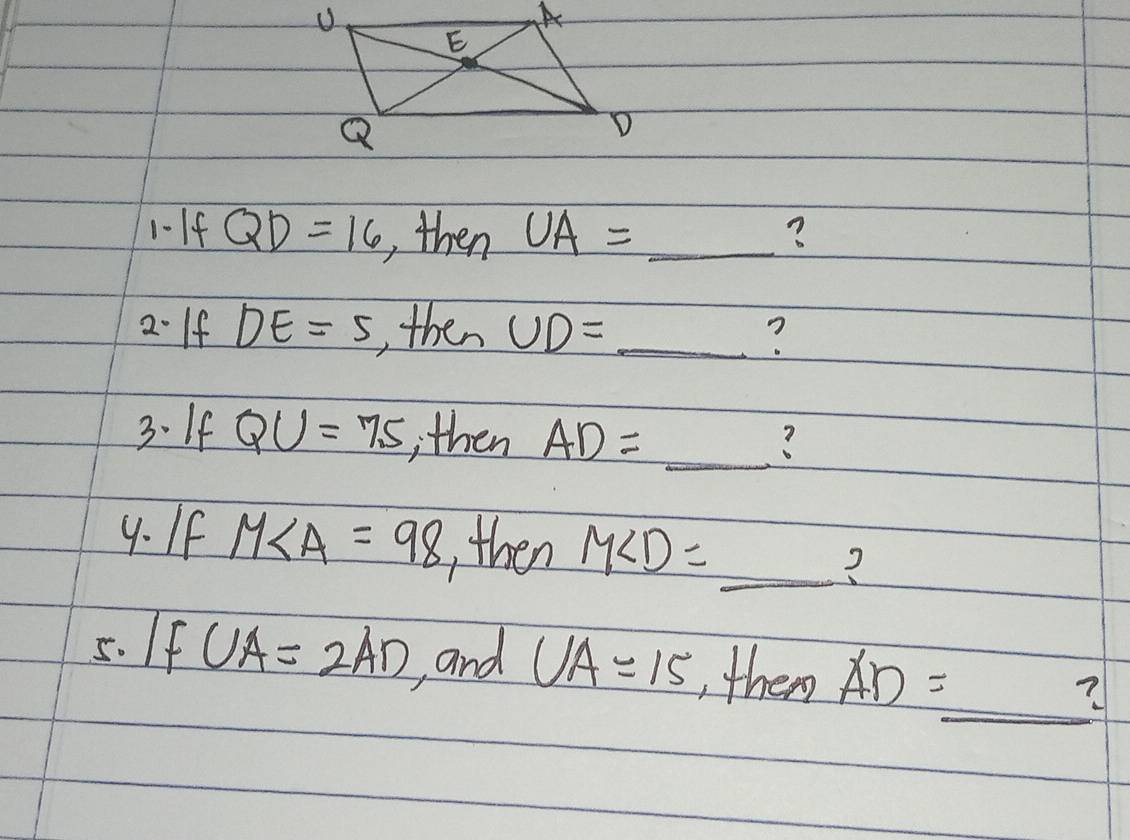 U E A
Q D
1. If QD = 16, then UA = ____ ?
2. If DE = 5, then UD = ____ ?
3. If QU = 7.5, then AD = ____ ?
4. If M<A = 98, then M<D = ____ ?
5. If UA = 2AD, and UA = 15, then AD = ____ ?